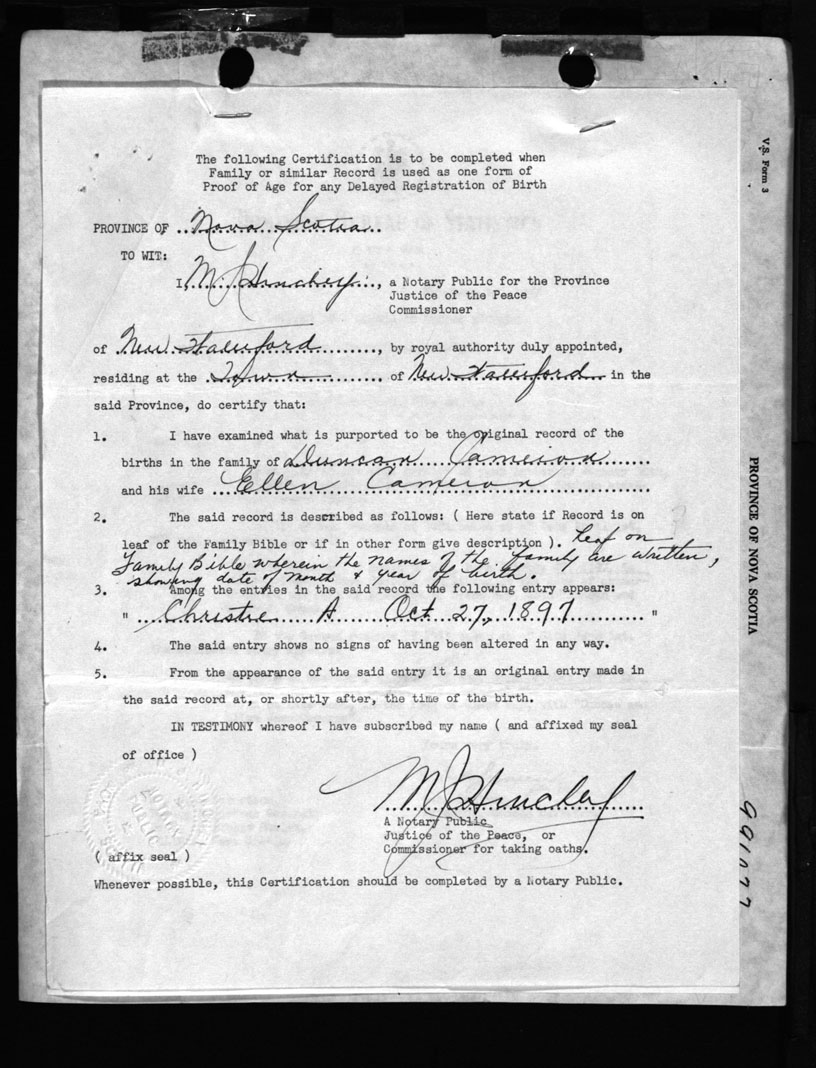 The following Certification is to be completed when
Family or similar Record is used as one form of
Proof of Age for any Delayed Registration of Birth
PROVINCE OF Nova Scotia
TO WIT:
I, M J Hinchey, a Notary Public for the Province
Justice of the Peace
Commissioner
of New Waterford, by royal authority duly appointed,
residing at the Town of New Waterford in the
said Province, do certify that:
1. I have examined what is purported to be the original record of the
births in the family of Duncan Cameron
and his wife Ellen Cameron
2. The said record is described as follows: ( Here state if Record is on
leaf of the Family Bible or if in other form give description ). Leaf on
Family Bible wherein the names of the family are written,
showing date of month & year of birth.
3. Among the entries in the said record the following entry appears:
" Christie A Oct 27, 1897 "
4. The said entry shows no signs of having been altered in any way.
5. From the appearance of the said entry it is an original entry made in
the said record at, or shortly after, the time of the birth.
IN TESTIMONY whereof I have subscribed my name ( and affixed my seal
of office )
M J Hinchey
A Notary Public
Justice of the Peace, or
Commissioner for taking oaths.
( affix seal )
Whenever possible, this Certification should be completed by a Notary Public.
V.S. Form 3
PROVINCE OF NOVA SCOTIA